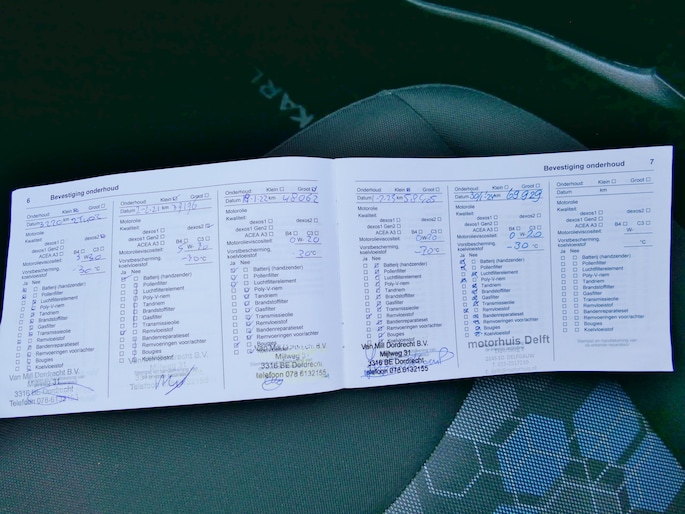 KARL
6 Bevestiging onderhoud
Onderhoud: Klein Groot
Datum km
Motorolie
Kwaliteit: dexos1 dexos2
dexos1 Gen2 B4 C3
ACEA A3
Motorolieviscositeit W-
Vorstbescherming koelvloeistof °C
Ja Nee
Batterij (handzender)
Pollenfilter
Luchtfilterelement
Poly-V-riem
Tandriem
Brandstoffilter
Gasfilter
Transmissieolie
Remvloeistof
Bandenreparatieset
Remvoeringen voor/achter
Bougies
Koelvloeistof
Van Mill Dordrecht B.V.
Mijlweg 31
3316 BE Dordrecht
Telefoon 078-6132155
Onderhoud: Klein Groot
Datum km 39196
Motorolie
Kwaliteit: dexos1 dexos2
dexos1 Gen2
ACEA A3 B4 C3
Motorolieviscositeit W-
Vorstbescherming koelvloeistof °C
Ja Nee
Batterij (handzender)
Pollenfilter
Luchtfilterelement
Poly-V-riem
Tandriem
Brandstoffilter
Gasfilter
Transmissieolie
Remvloeistof
Bandenreparatieset
Remvoeringen voor/achter
Bougies
Koelvloeistof
Van Mill Dordrecht B.V.
Onderhoud: Klein Groot
Datum 19-1-22 km 48062
Motorolie
Kwaliteit: dexos1 dexos2
dexos1 Gen2
ACEA A3 B4 C3
Motorolieviscositeit 0 W-20
Vorstbescherming, koelvloeistof -30°C
Ja Nee
Batterij (handzender)
Pollenfilter
Luchtfilterelement
Poly-V-riem
Tandriem
Brandstoffilter
Gasfilter
Transmissieolie
Remvloeistof
Bandenreparatieset
Remvoeringen voor/achter
Bougies
Van Mill Dordrecht B.V.
Mijlweg 31
3316 BE Dordrecht
telefoon 078 6132155
Bevestiging onderhoud 7
Onderhoud: Klein Groot
Datum km 58405
Motorolie
Kwaliteit: dexos1 dexos2
dexos1 Gen2
ACEA A3 B4 C3
Motorolieviscositeit 0W-20
Vorstbescherming, koelvloeistof -30°C
Ja Nee
Batterij (handzender)
Pollenfilter
Luchtfilterelement
Poly-V-riem
Tandriem
Brandstoffilter
Gasfilter
Transmissieolie
Remvloeistof
Bandenreparatieset
Remvoeringen voor/achter
Bougies
Van Mill Dordrecht B.V.
Mijlweg 31
3316 BE Dordrecht
telefoon 078 6132155
Onderhoud: Klein Groot
Datum km 69929
Motorolie
Kwaliteit: dexos1 dexos2
dexos1 Gen2
ACEA A3 B4 C3
Motorolieviscositeit 0 W-20
Vorstbescherming, koelvloeistof -30°C
Ja Nee
Batterij (handzender)
Pollenfilter
Luchtfilterelement
Poly-V-riem
Tandriem
Brandstoffilter
Gasfilter
Transmissieolie
Remvloeistof
Bandenreparatieset
Remvoeringen voor/achter
Bougies
Koelvloeistof
motorhuis Delft
Onderhoud: Klein Groot
Datum km
Motorolie
Kwaliteit: dexos1 dexos2
dexos1 Gen2
ACEA A3 B4 C3
Motorolieviscositeit W-
Vorstbescherming, koelvloeistof °C
Ja Nee
Batterij (handzender)
Pollenfilter
Luchtfilterelement
Poly-V-riem
Tandriem
Brandstoffilter
Gasfilter
Transmissieolie
Remvloeistof
Bandenreparatieset
Remvoeringen voor/achter
Bougies
Koelvloeistof